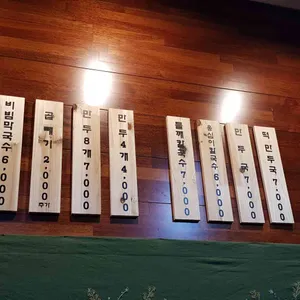 비빔막국수 6,000
곱빼기 2,000 추가
만두 8개 7,000
만두 4개 4,000
들깨칼국수 7,000
옹심이칼국수 6,000
만두국 7,000
떡만두국 7,000